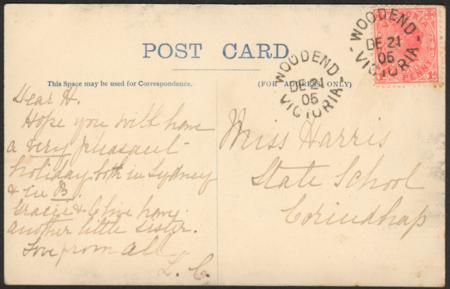 POST CARD
This Space may be used for Correspondence.
(FOR ADDRESS ONLY)
WOODEND
DE 21
05
VICTORIA
WOODEND
DE 21
05
VICTORIA
Dear H.
Hope you will have
a very pleasant
holiday both in Sydney
& in B.
Gracie & Clive have
another little sister.
Love from all
L. C.
Miss Harris
State School
Corindhap